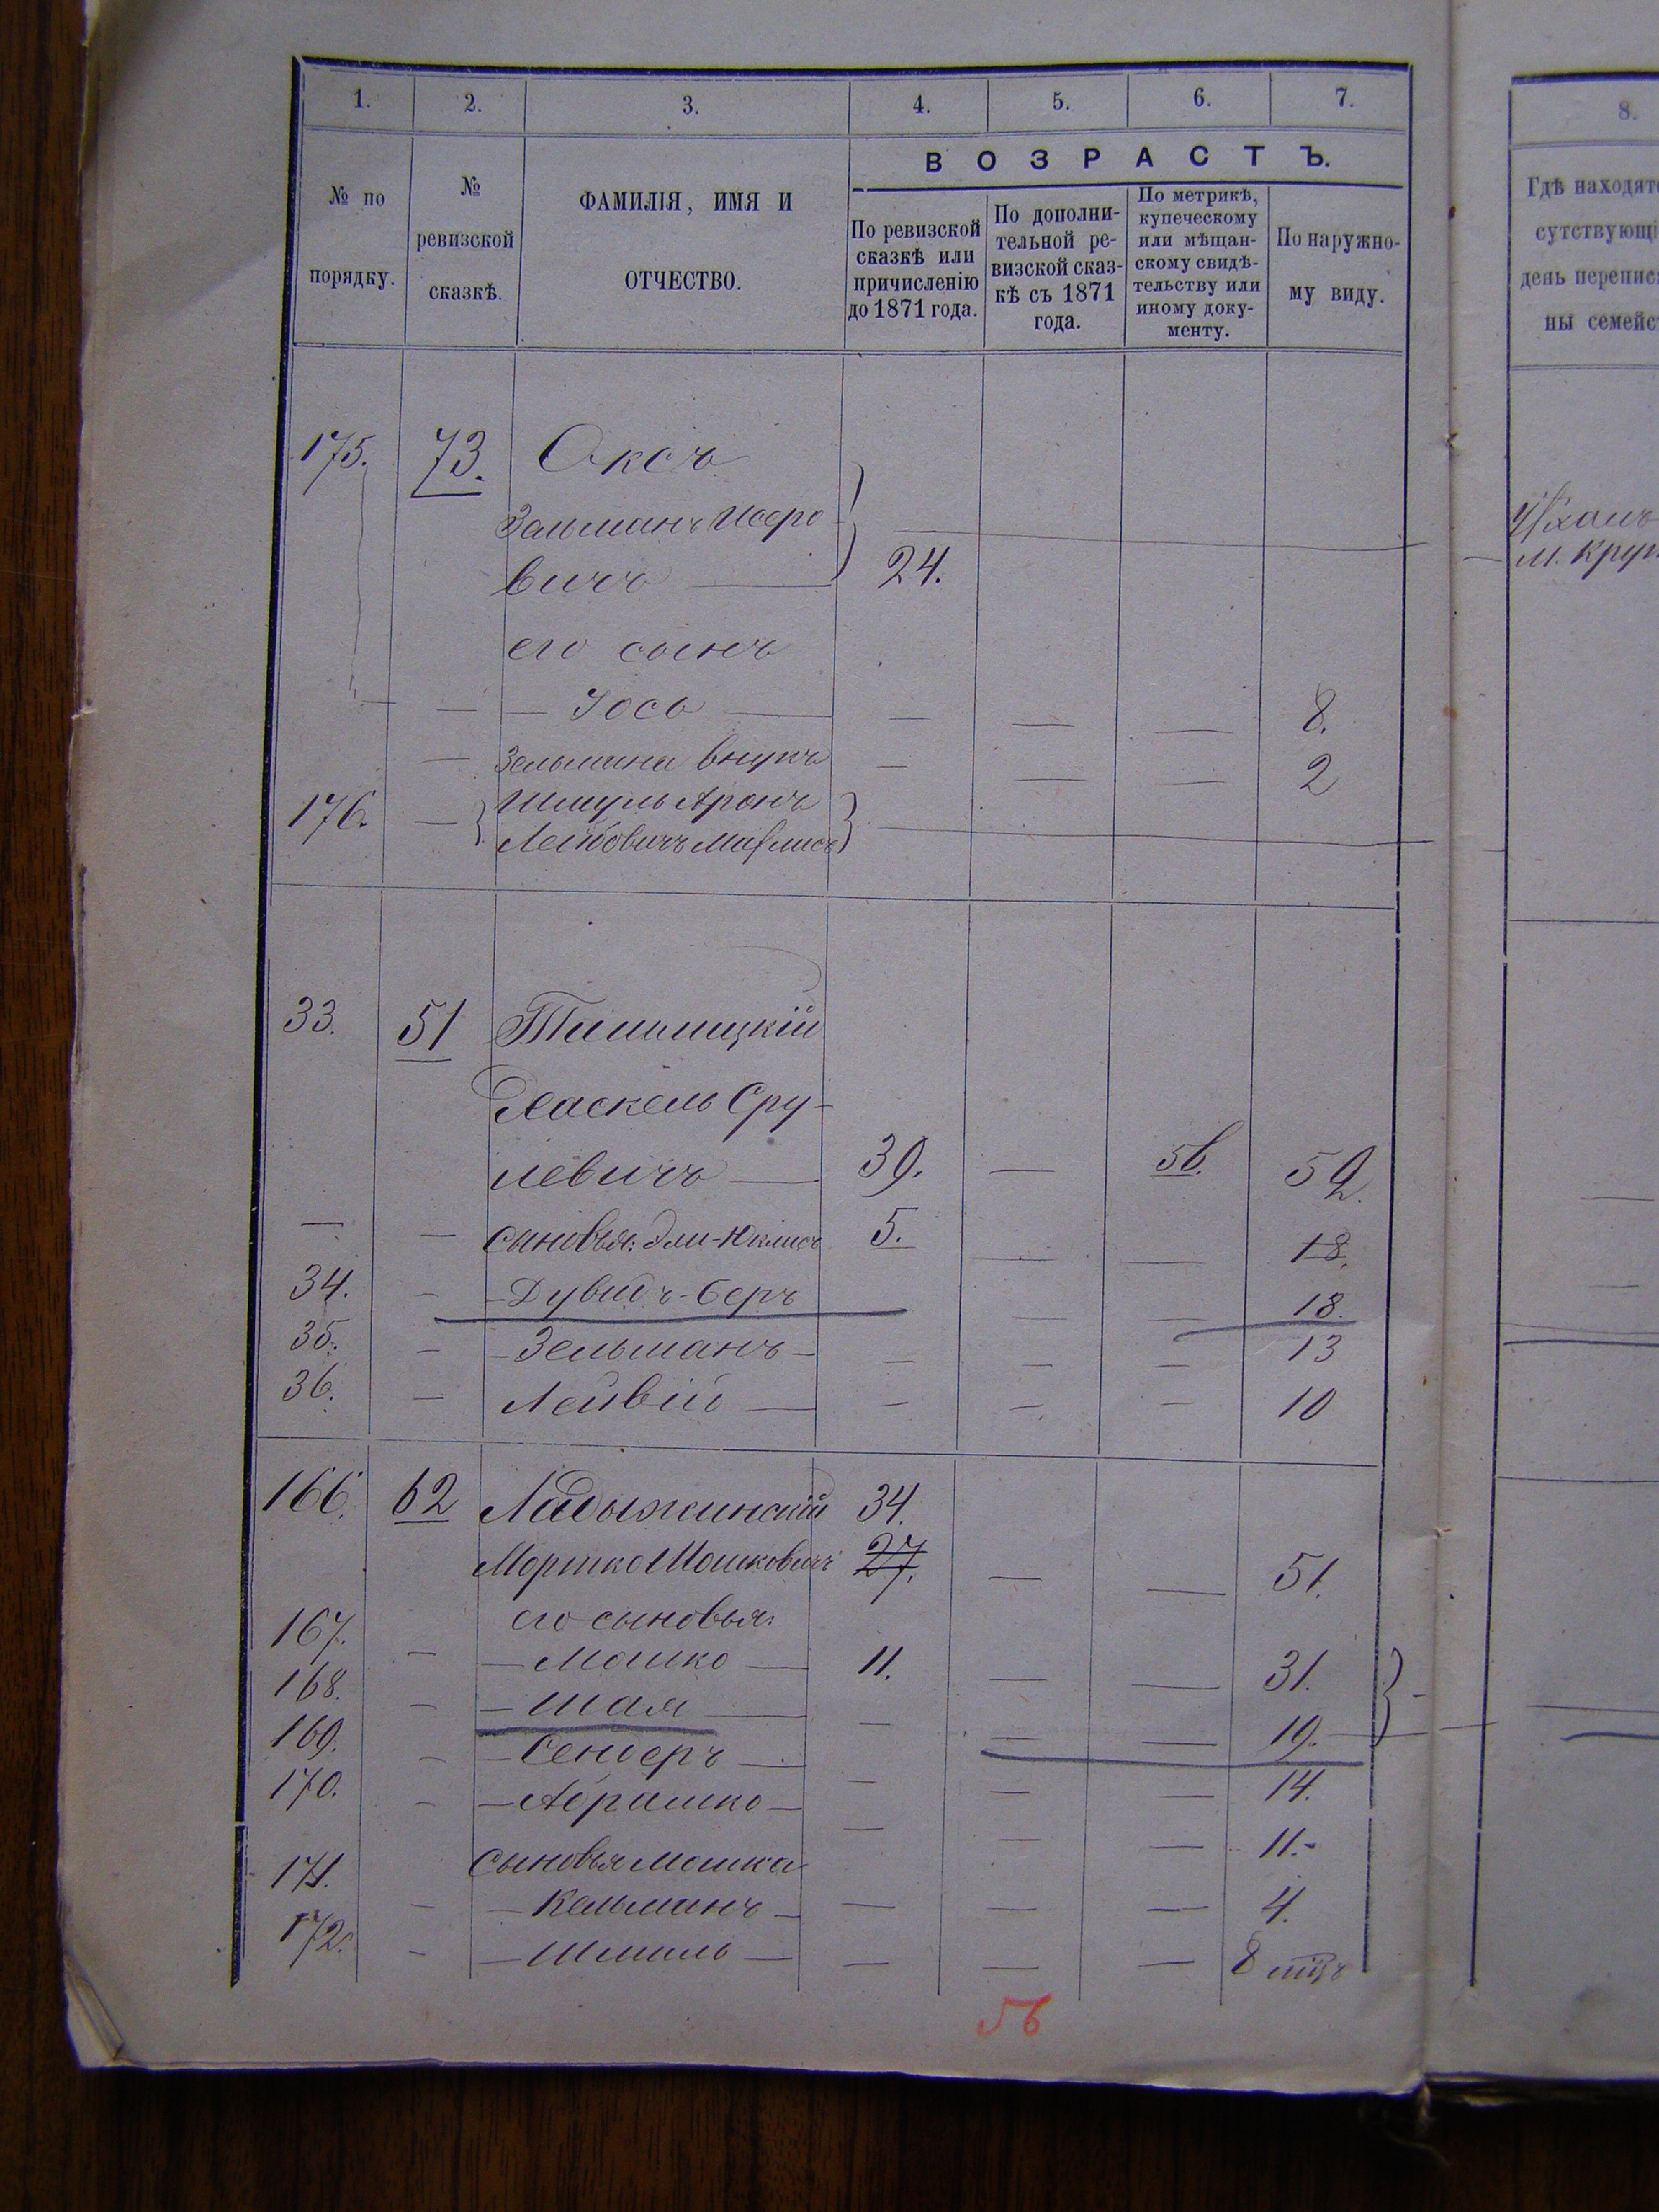 1. 2. 3. 4. 5. 6. 7.
ВОЗРАСТЪ.
№ по
порядку.
№
ревизской
сказкѣ.
ФАМИЛІЯ, ИМЯ И
ОТЧЕСТВО.
По ревизской
сказкѣ или
причисленію
до 1871 года.
По дополни-
тельной ре-
визской сказ-
кѣ съ 1871
года.
По метрикѣ,
купеческому
или мѣщан-
скому свидѣ-
тельству или
иному доку-
менту.
По наружно-
му виду.
175. 73. Оксъ
Зельманъ Иосро
вичъ — 24.
его сынъ
— — Іось — — — — 8.
— Зельмана внукъ — — — 2
176. — Шмуль Аронъ
Лейбовичъ
33. 51 
Хаскель Сру-
левичъ — 39. — 56. 59.
— — сыновья: Эли- 5. — — 18.
34. - - Дувидъ-Беръ — — 18.
35. - - Зельманъ - — — — 13
36. - Лейвій — — — — 10
166. 62 Ладыжинскій 34.
Мортко Мошковичъ 27. — — 51.
его сыновья:
167. - — Мошко — 11. — — 31.
168. - — Шая — — — — 19.
169. - — Сендеръ — — — — 14.
170. - — Абрамко — — — — 11.-
сыновья Мошка
171. - — Кельманъ — — — — 4.
172. - — Шмиль — — — — 8 мѣс
56
8.
Гдѣ находят
сутствующі
день перепис
ны семейс
м. Круп